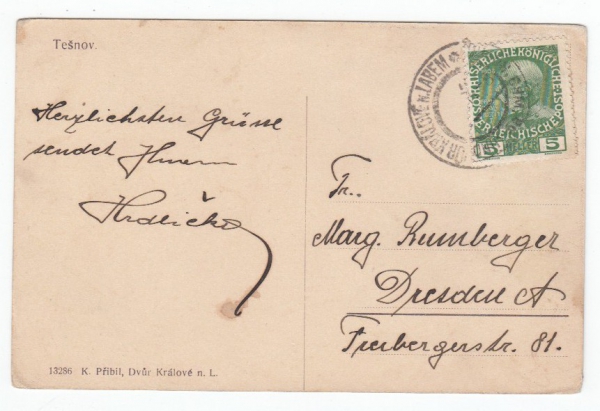 Tešnov.
Herzlichsten Grüsse
sendet Ihnen
Hrdlička
13286 K. Přibil, Dvůr Králové n. L.
KAISERLICHEKÖNIGLICHE
ÖSTERREICHISCHEPOST
5 5
KRÁLOVÉ N. LABEM
Fr.
Marg. Rumberger
Dresden A
Freibergerstr. 81.